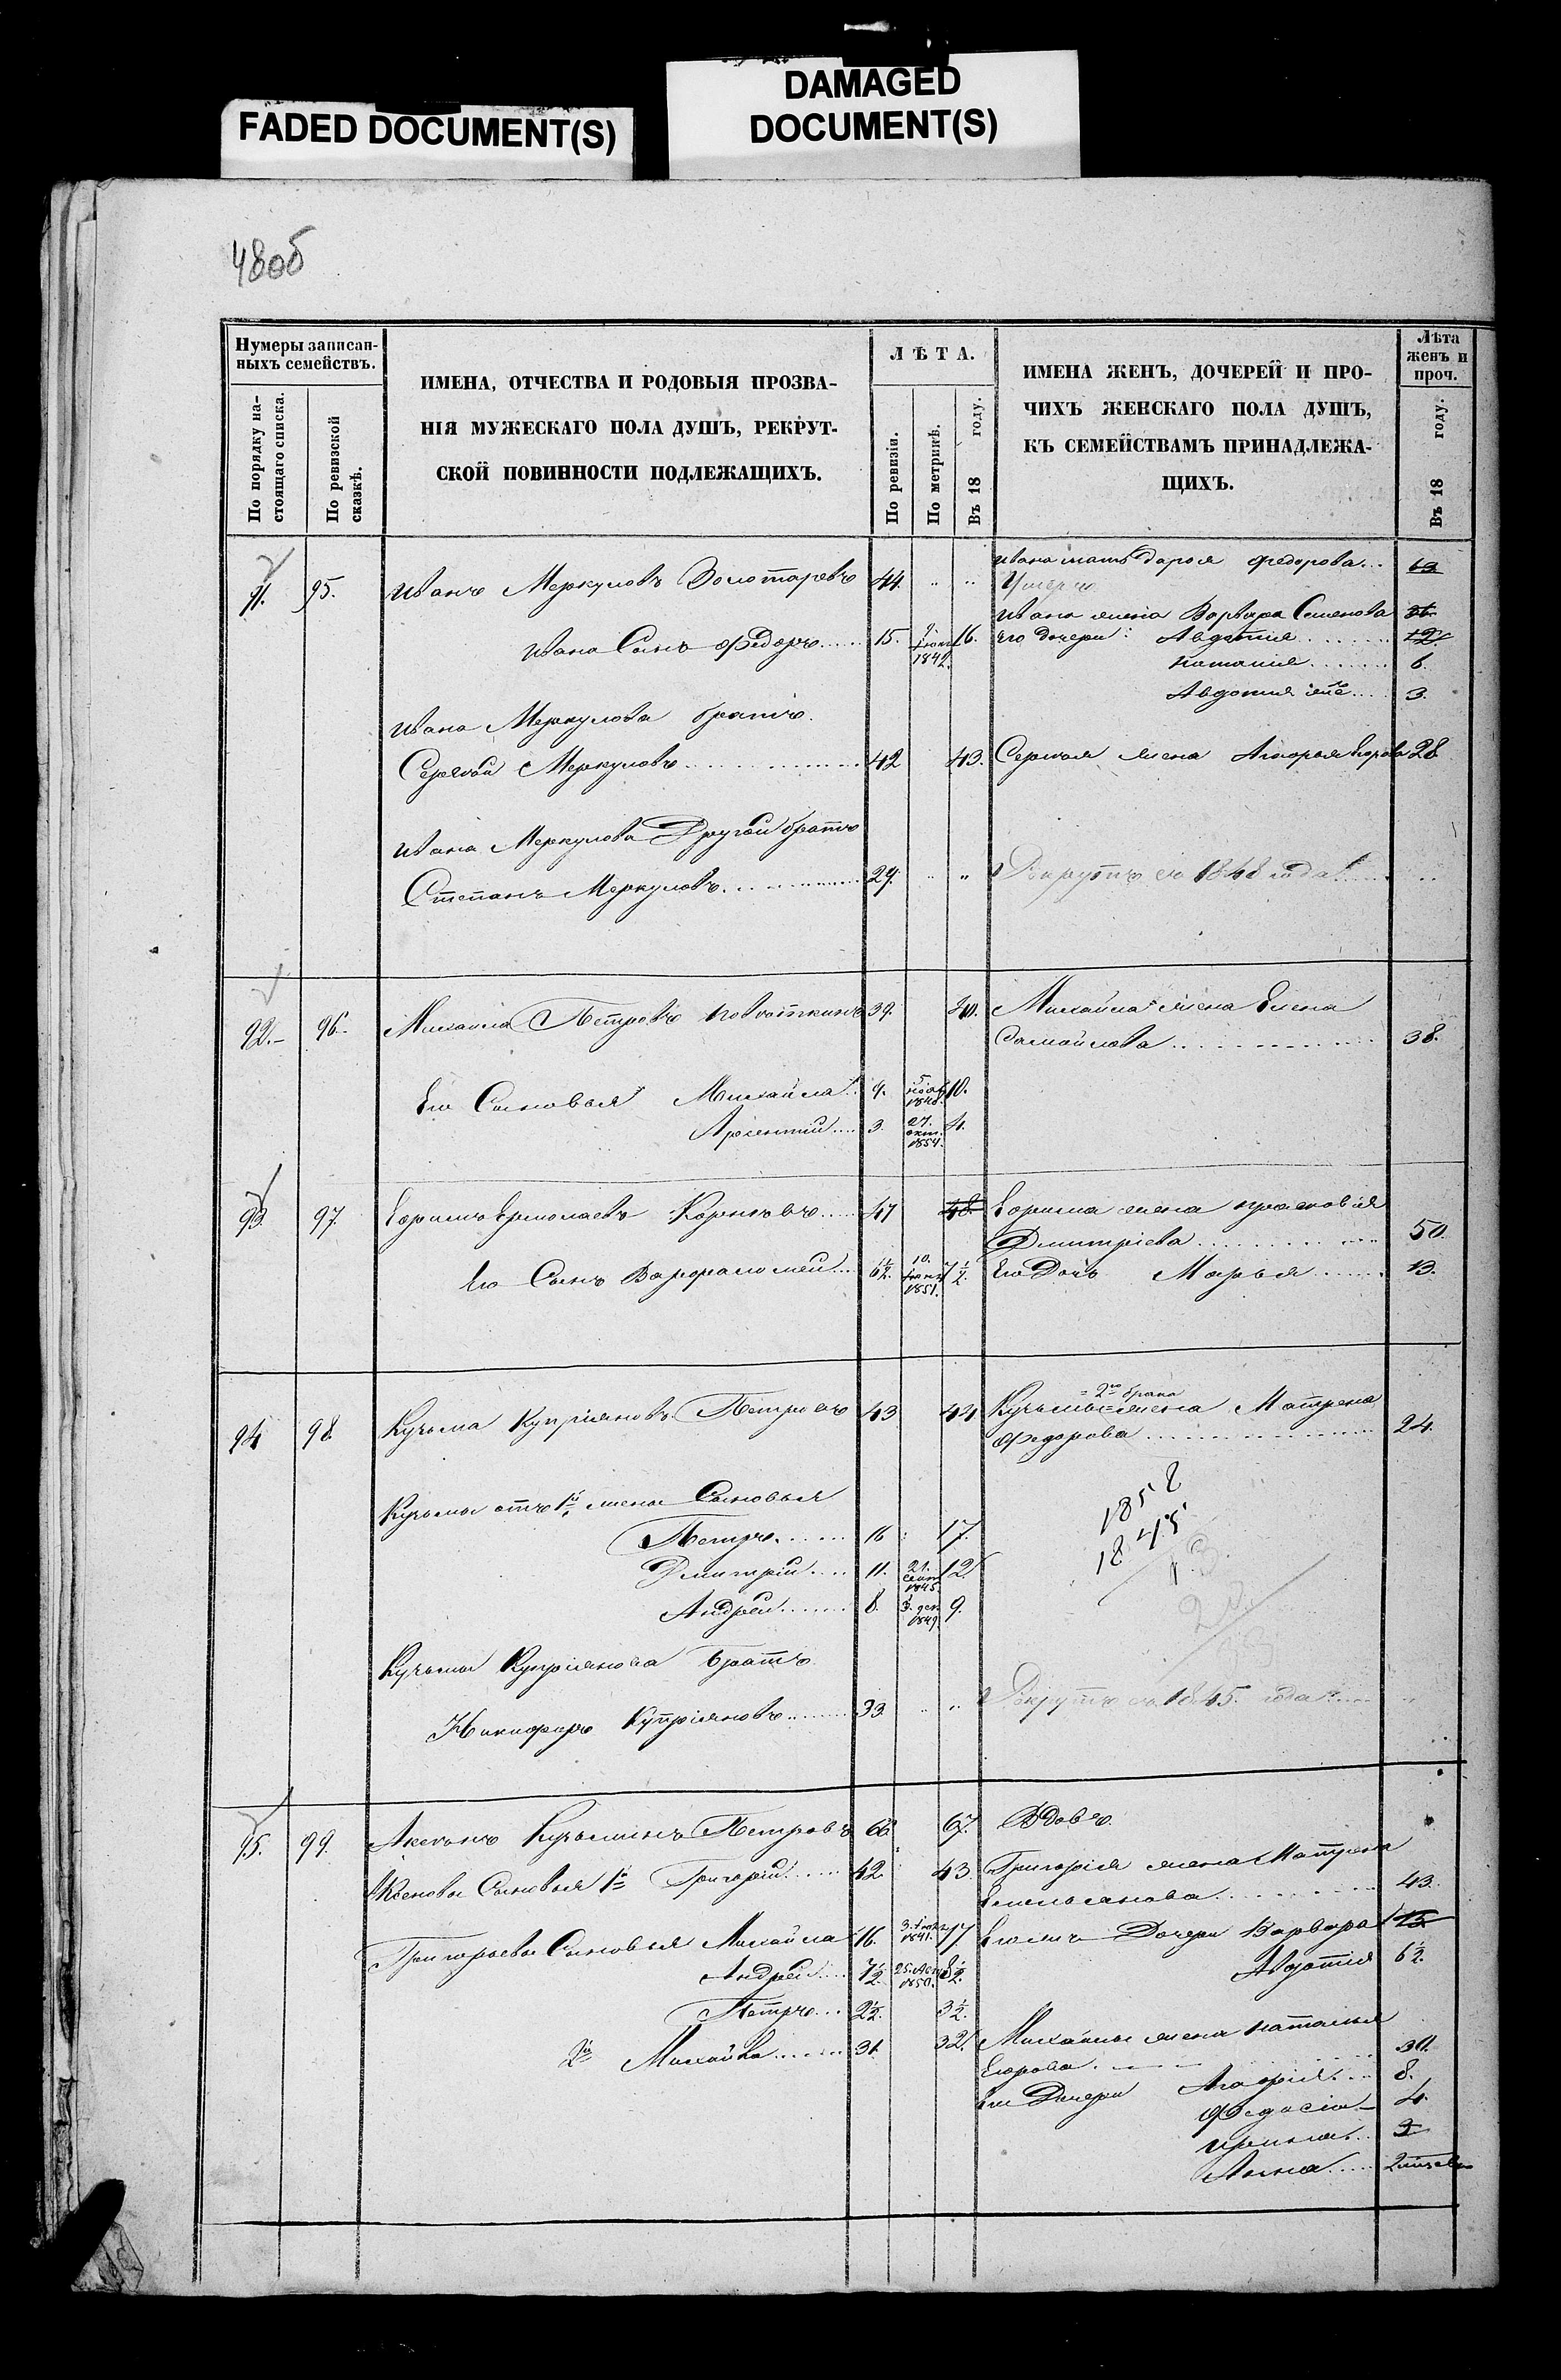 FADED DOCUMENT(S)
DAMAGED
DOCUMENT(S)
48об
Нумеры записан-
ныхъ семействъ.
По порядку на-
стоящаго списка.
По ревизской
сказкѣ.
ИМЕНА, ОТЧЕСТВА И РОДОВЫЯ ПРОЗВА-
НІЯ МУЖЕСКАГО ПОЛА ДУШЪ, РЕКРУТ-
СКОЙ ПОВИННОСТИ ПОДЛЕЖАЩИХЪ.
ЛѢТА.
По ревизіи.
По метрикѣ.
Въ 18 году.
ИМЕНА ЖЕНЪ, ДОЧЕРЕЙ И ПРО-
ЧИХЪ ЖЕНСКАГО ПОЛА ДУШЪ,
КЪ СЕМЕЙСТВАМЪ ПРИНАДЛЕЖА-
ЩИХЪ.
Лѣта
женъ и
проч.
Въ 18 году.
Ивана мать Дарья Федорова 63
91. 95. Иванъ Меркуловъ Золотаревъ 44. " "
Ивана жена Варвара Семенова 36
Ивана Сынъ Федоръ 15. 1842. 16. Его дочери: Авдотия 12.
Наталия 6.
Авдотия 3.
Ивана Меркулова братъ
Сергѣй Меркуловъ 42 43. Сергѣя жена 28
Ивана Меркулова Другой братъ
Степанъ Меркуловъ 29. " " Рекрутъ съ 1848 года
92. 96. Михаила Петровъ 39. 40. Михайла жена Елена
Самойлова 38.
Его Сыновья Михайла 9. 5 нояб. 1848. 10.
Арсентий 3. 27. окт. 1854. 4.
93. 97. Ефимъ Ермолаевъ 47 48. Ефима жена Прасковія
Дмитріева 50.
Его Сынъ Варфаломей 6½. 10. 1851. 7½. Его Дочь Марья 13.
94 98. Кузьма Купріяновъ Петровъ 43 44 Кузьмы = 2го брака = жена Матрена
Федорова 24.
Кузьмы отъ 1й жены Сыновья
Петръ 16 17.
Дмитрій 11. 21. сент. 1845. 12.
Андрей 8. 3. дек. 1849. 9.
1858
1845
13
Кузьмы Купріянова братъ
Никифоръ Купріяновъ 33. Рекрутъ съ 1845. года
95. 99. Аксенъ Кузьминъ Петровъ 66 67. Вдовъ
Аксеновы Сыновья 1й Григорій 42 43. Григорія жена Матрена
Емельянова 43.
Григорьевы Сыновья Михайла 16. 1841. 17 Дочери Варвара 15
Андрей 7½. 1850. 8½. Авдотия 6½.
Петръ 2½. 3½.
2й Михайла 31. 32. Михайлы жена Наталья
Егорова 30.
Его Дочери 8.
Федосія 4.
Ирина
Анна